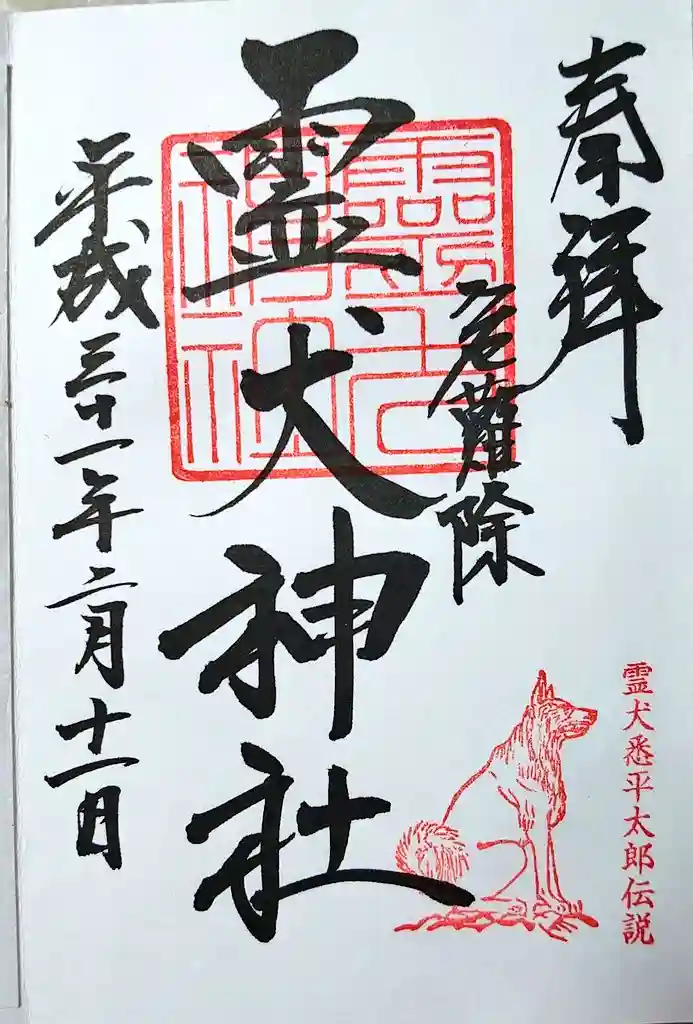 奉拝
危難除
霊犬神社
霊犬神社
平成三十一年二月十一日
霊犬悉平太郎伝説